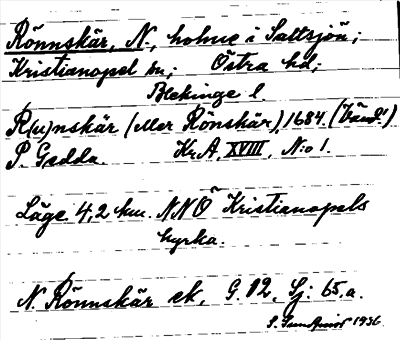 Rönnskär, N., holme i Saltsjön;
Kristianopel sn; Östra hd;
Blekinge l.
R(u)nskär (eller Rönskär), 1684. (Vänd!)
P. Gedda. Kr.A, XVIII, N:o 1.
Läge 4,2 km. NNÖ Kristianopels
kyrka.
N. Rönnskär ek, G. 12, Sj: 65, a.
1936